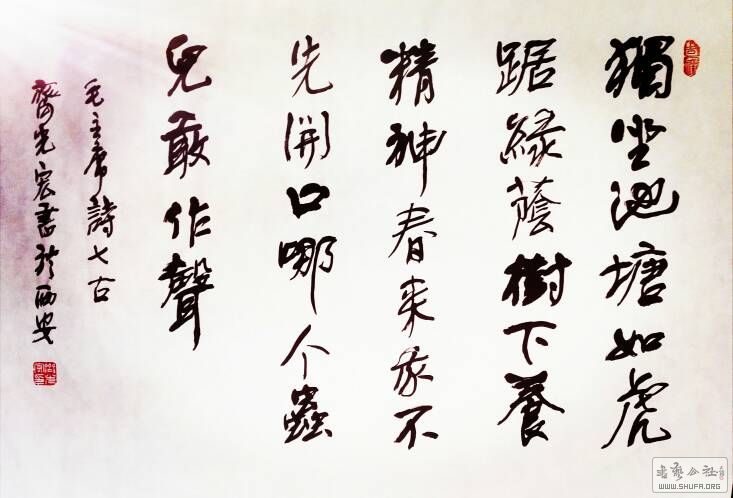 獨坐池塘如虎
踞綠蔭樹下養
精神春来我不
先開口哪个蟲
兒敢作聲
毛主席詩七古
齊光宏書於西安
书艺公社
WWW.SHUFA.ORG